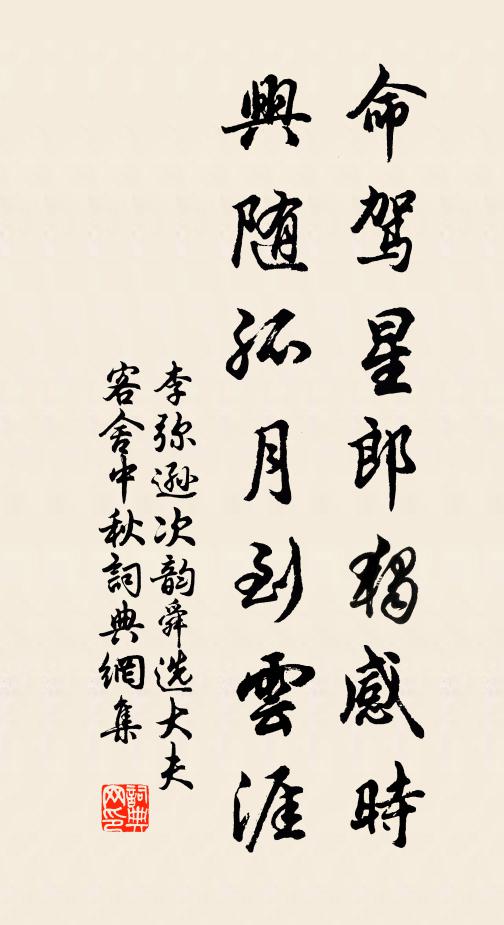 命驾星郎独感時
興随孤月到雲涯
李弥遜次韵舜选大夫
客舍中秋詞典網集
詞典网印